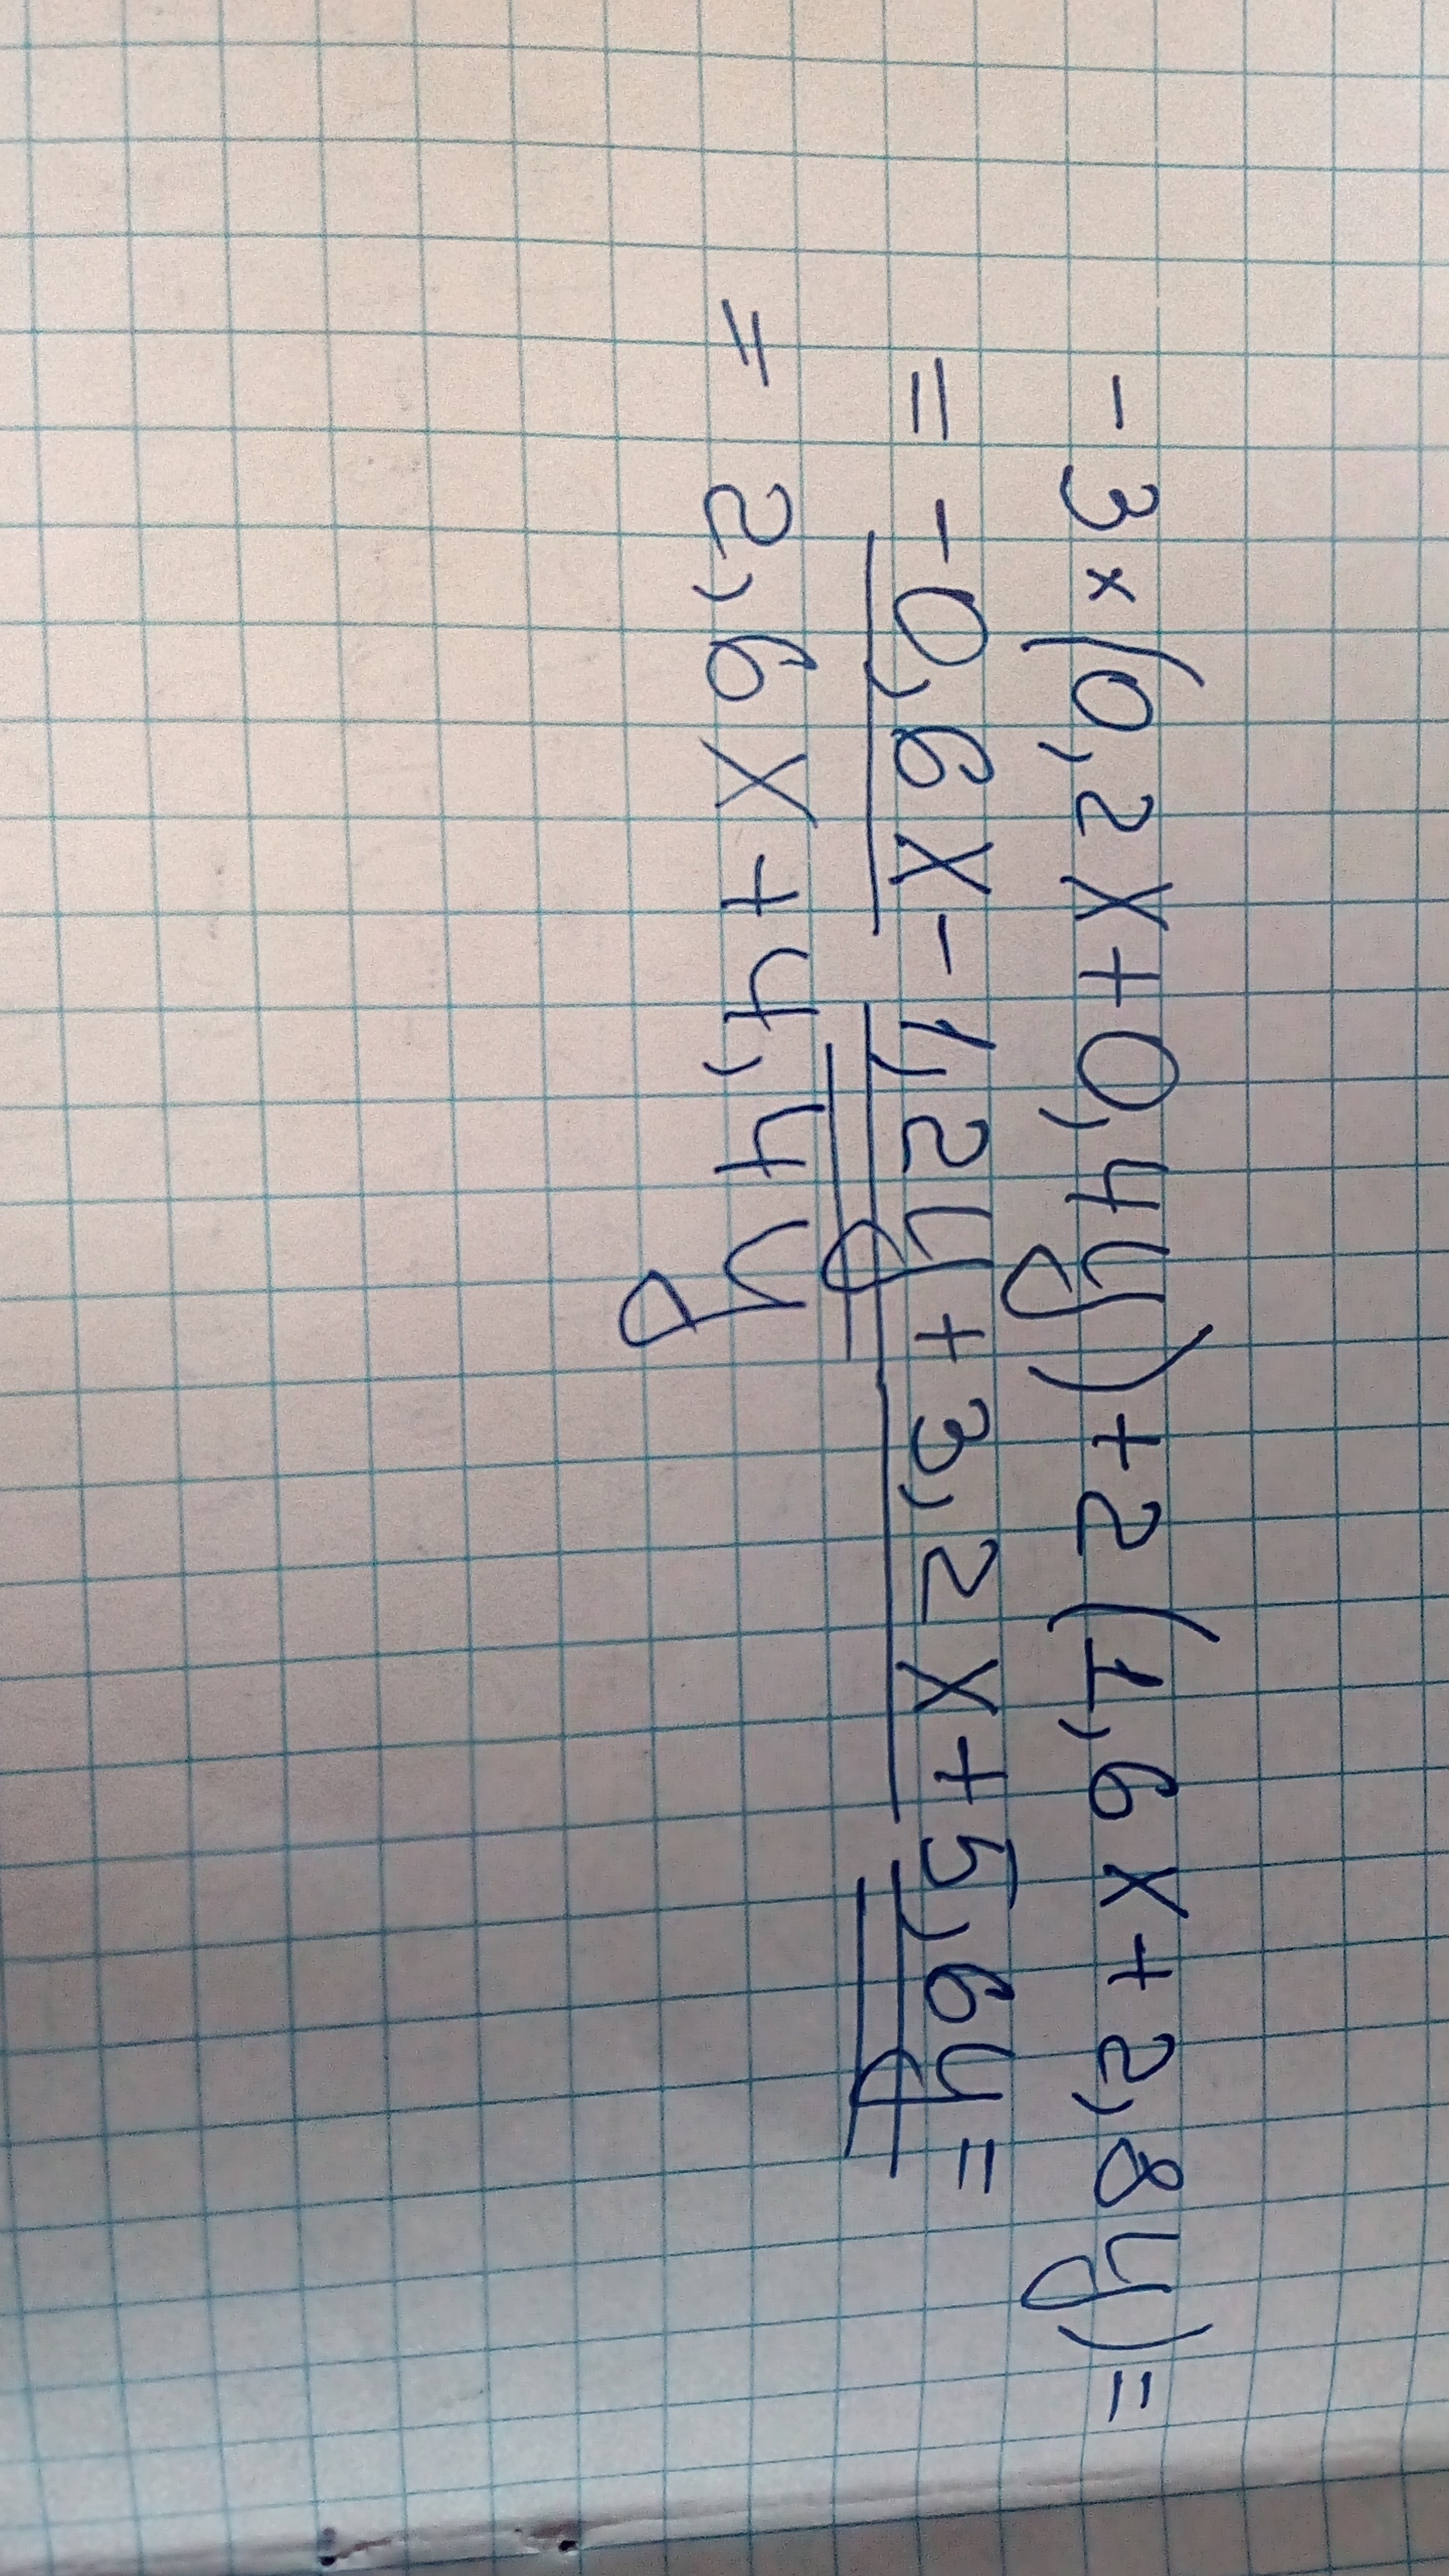 - 3 × (0,2x + 0,4y) + 2 (1,6x + 2,8y) =
= - 0,6x - 1,2y + 3,2x + 5,6y =
= 2,6x + 4,4y